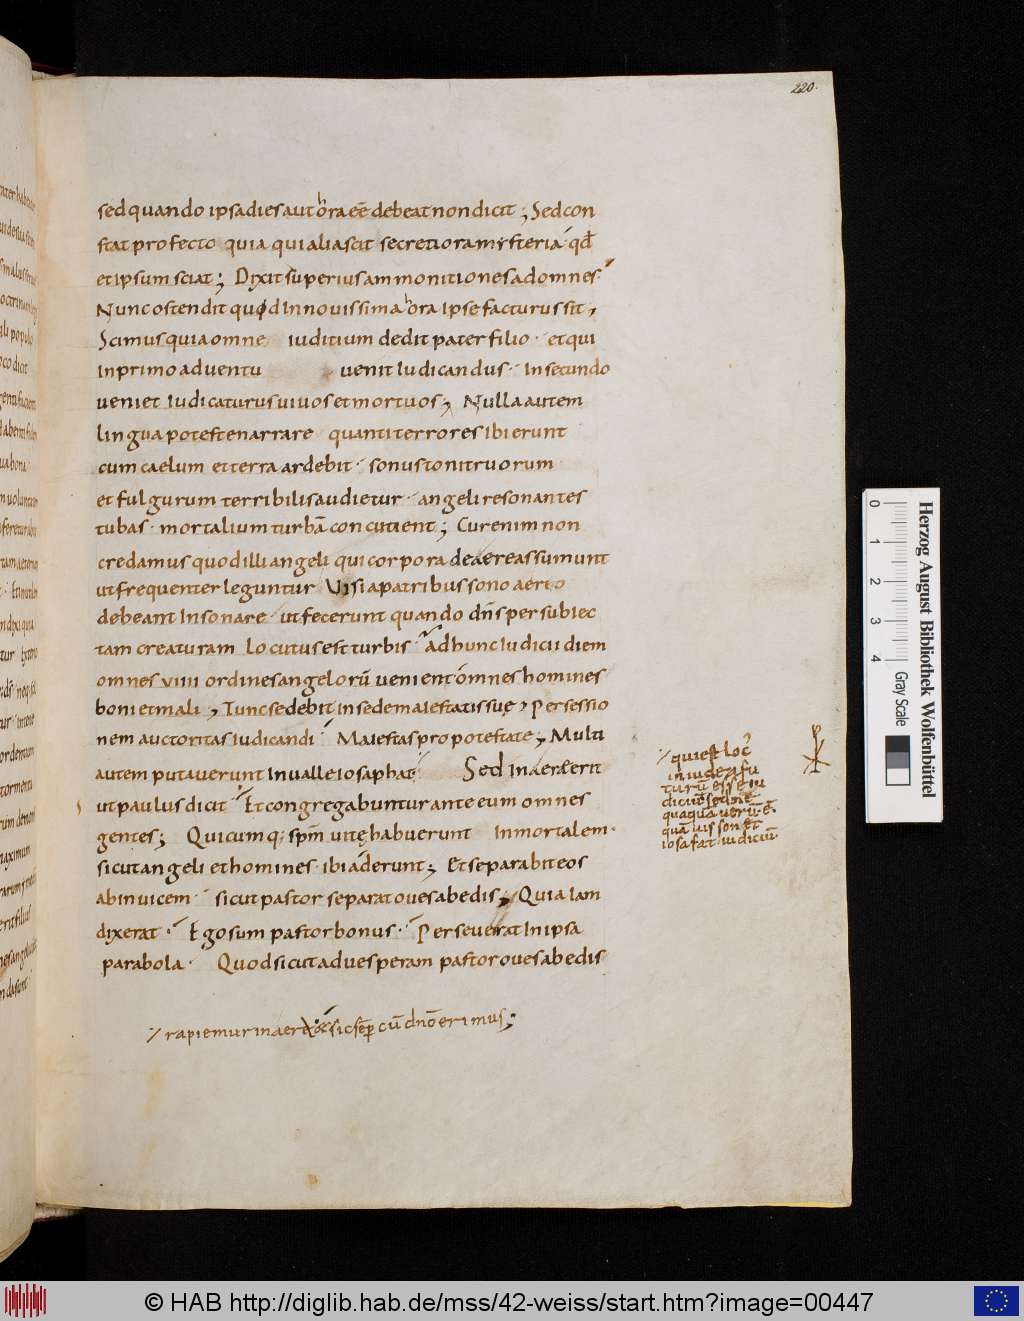 220.
sed quando ipsa dies aut hora eē debeat non dicit ; Sed con
stat profecto quia qui alia scit secretiora mysteria qđ
et ipsum sciat ; Dixit superius ammonitiones ad omnes
Nunc ostendit quod In novissima hora Ipse facturus sit ,
Scimus quia omne iuditium dedit pater filio · et qui
In primo adventu venit Iudicandus · In secundo
veniet Iudicaturus vivos et mortuos ; Nulla autem
lingua potest enarrare quanti terrores ibi erunt
cum caelum et terra ardebit · sonus tonitruorum
et fulgurum terribilis audietur · angeli resonantes
tubas · mortalium turbā concutient ; Cur enim non
credamus quod illi angeli qui corpora de aere assumunt
ut frequenter leguntur Visi a patribus sono aerio
debeant Insonare · ut fecerunt quando dn̄s per subiec
tam creaturam locutus est turbis · Ad hunc Iudicii diem
omnes viiii ordines angelorū venient omnes homines
boni et mali , Tunc sedebit in sede maiestatis suę , Per sessio
nem auctoritas iudicandi Maiestas pro potestate ; Multi
autem putaverunt In valle iosaphat Sed In aere erit
ut paulus dicit Et congregabuntur ante eum omnes
gentes ; Quicumq; spm̄ vitę habuerunt Inmortalem ·
sicut angeli et homines · ibi aderunt ; Et separabit eos
ab invicem · sicut pastor separat oves ab edis ; Quia Iam
dixerat · Ego sum pastor bonus · Perseverat In ipsa
parabola · Quod sicut ad vesperam pastor oves ab edis
rapiemur in aera et sic semp cū dn̄o erimus ;
qui est loc'
in iudea
turū esse iu
diciū sed
quaquā verū ē
quā vis son
iosafat iudiciū
0 1 2 3 4
Herzog August Bibliothek Wolfenbüttel
Gray Scale
© HAB http://diglib.hab.de/mss/42-weiss/start.htm?image=00447